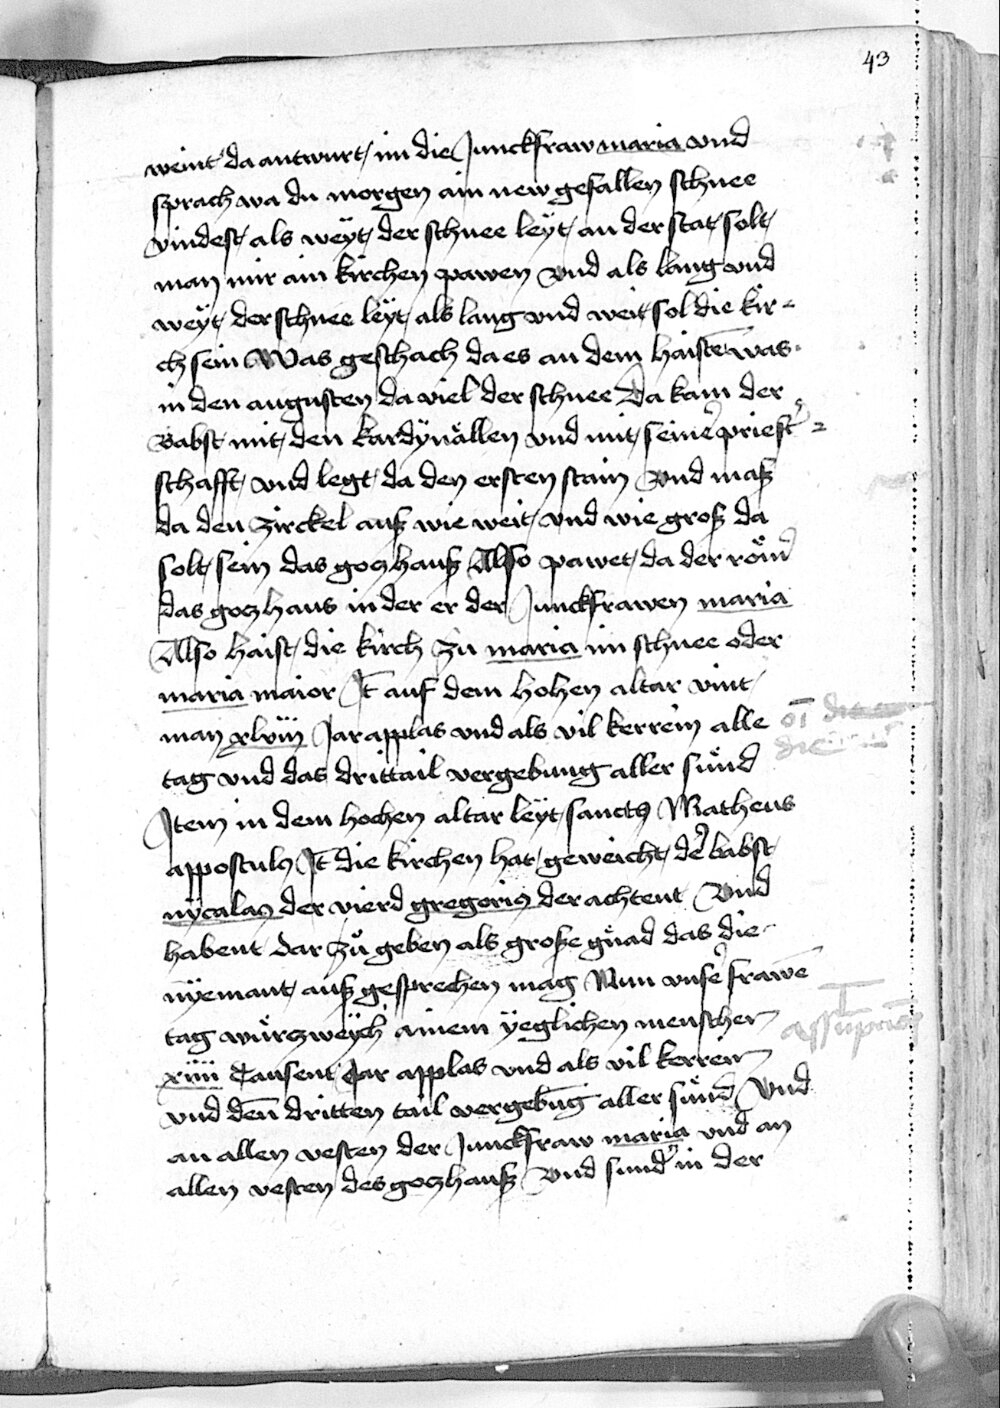 43
weint da antwurt im die Junckfraw maria vnd
sprach wa du morgen ain new gefallen schnee
vindest als weÿt der schnee leÿt an der stat solt
man mir ain kirchen pawen vnd als lang vnd
weÿt der schnee leÿt als lang vnd weit sol die kir-
ch sein Was geschach da es an dem haisten was
in den augusten da viel der schnee Da kam der
Babst mit den kardÿnällen vnd mit seiner priest-
schafft vnd legt da den ersten stain Vnd masz
da den zirckel ausz wie weit vnd wie grosz da
solt sein das goczhausz Also pawet da der röm
das goczhaus in der er der Junckfrawen maria
Also haist die kirch zu maria im schnee oder
maria maior It auf dem hohen altar vint
man xlviij Jar applas vnd als vil kerrein alle
tag vnd das drittail vergebung aller sünd
Item in dem hochen altar leÿt sanctus Matheus
appostulus It die kirchen hat geweicht der babst
nÿcalas der vierd gregorius der achtent Vnd
habent dar zů geben als grosze gnad das die
nÿemant ausz gesprechen mag Nun vnser frawe
tag würczweÿch ainem ÿeglichen menschen
xiiij Tausent Jar applas vnd als vil kerrein
vnd den dritten tail vergebung aller sünd Vnd
an allen vesten der Junckfraw maria vnd an
allen vesten des goczhausz Vnd sund in der